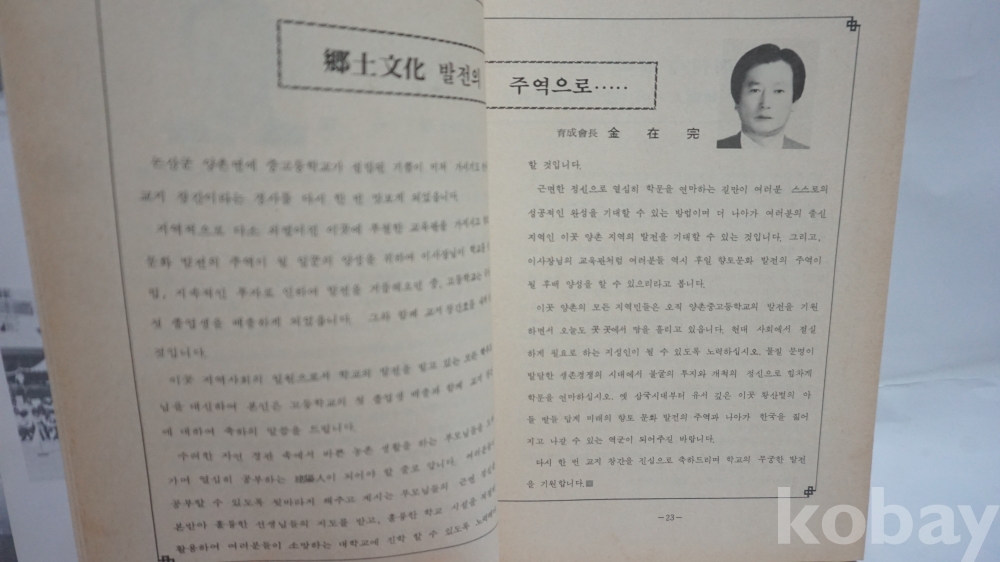 鄕土文化 발전의
주역으로……
育成會長 金在完
논산군 양촌면에 중고등학교가 설립된 기쁨이
교지 창간이라는 경사를 다시 한 번 맛보게 되었습니다.
지역적으로 다소 외떨어진 이곳에 투철한 교육관을 가지시고
문화 발전의 주역이 될 일꾼의 양성을 위하여 이사장님이 학교를
립, 지속적인 투자로 인하여 발전을 거듭해오던 중, 고등학교는
첫 졸업생을 배출하게 되었습니다. 그와 함께 교지 창간호를
것입니다.
이곳 지역사회의 일원으로서 학교의 발전을 빌고 있는 모든
님을 대신하여 본인은 고등학교의 첫 졸업생 배출과 함께 교지
에 대하여 축하의 말씀을 드립니다.
수려한 자연 경관 속에서 바쁜 농촌 생활을 하는 부모님들을
가며 열심히 공부하는 陽人이 되어야 할 줄로 압니다. 여러분들이
공부할 수 있도록 뒷바라지 해주고 계시는 부모님들의 근면 정신을
본받아 훌륭한 선생님들의 지도를 받고, 훌륭한 학교 시설을
활용하여 여러분들이 소망하는 대학교에 진학 할 수 있도록 노력해야
할 것입니다.
근면한 정신으로 열심히 학문을 연마하는 길만이 여러분 스스로의
성공적인 완성을 기대할 수 있는 방법이며 더 나아가 여러분의 출신
지역인 이곳 양촌 지역의 발전을 기대할 수 있는 것입니다. 그리고,
이사장님의 교육관처럼 여러분들 역시 후일 향토문화 발전의 주역이
될 후배 양성을 할 수 있으리라고 봅니다.
이곳 양촌의 모든 지역민들은 오직 양촌중고등학교의 발전을 기원
하면서 오늘도 곳곳에서 땀을 흘리고 있읍니다. 현대 사회에서 절실
하게 필요로 하는 지성인이 될 수 있도록 노력하십시오. 물질 문명이
발달한 생존경쟁의 시대에서 불굴의 투지와 개척의 정신으로 힘차게
학문을 연마하십시오. 옛 삼국시대부터 유서 깊은 이곳 황산벌의 아
들 딸들 답게 미래의 향토 문화 발전의 주역과 나아가 한국을 짊어
지고 나갈 수 있는 역군이 되어주길 바랍니다.
다시 한 번 교지 창간을 진심으로 축하드리며 학교의 무궁한 발전
을 기원합니다.
—23—
kobay